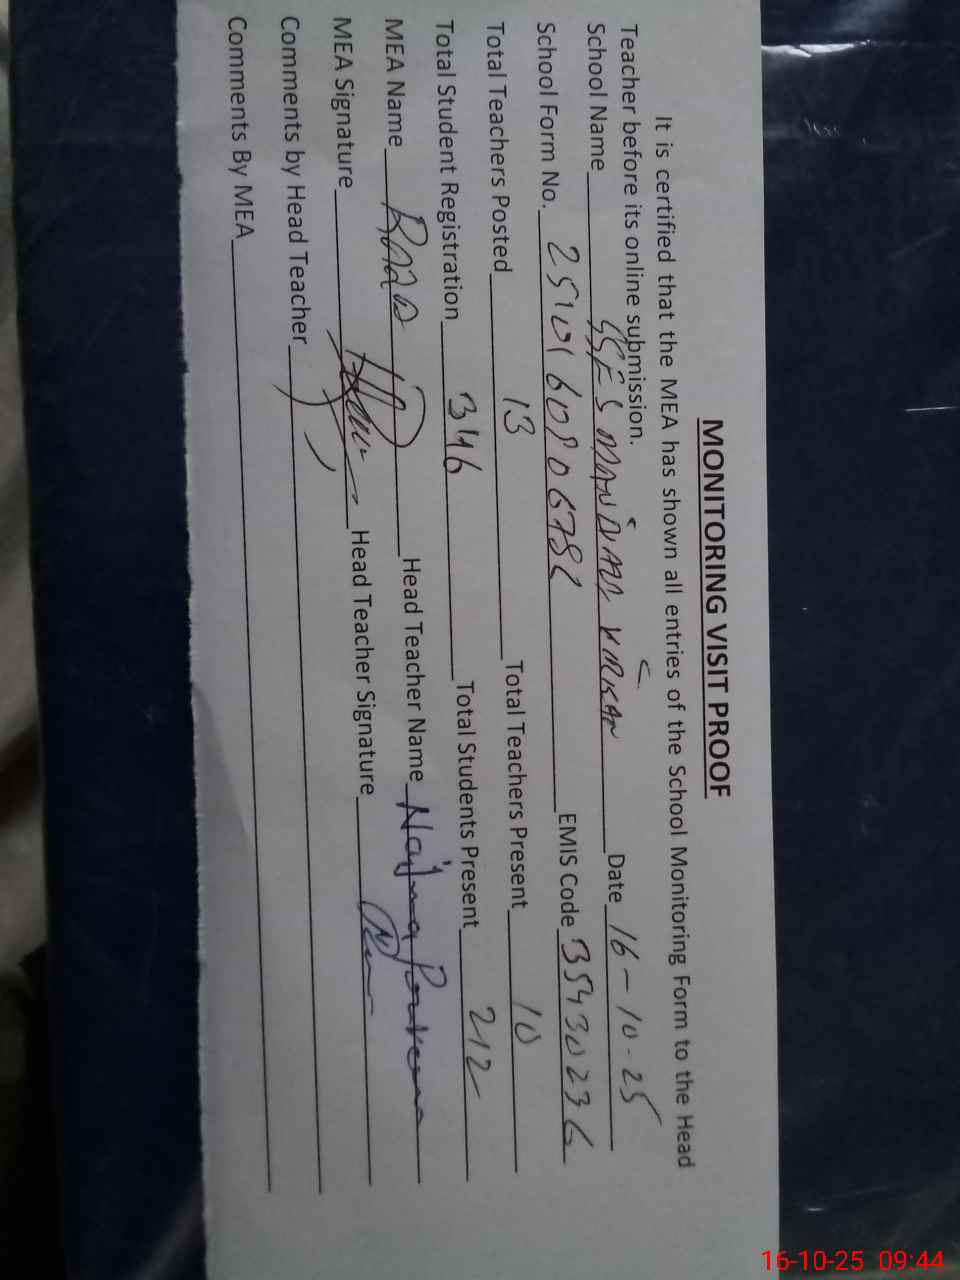 MONITORING VISIT PROOF
It is certified that the MEA has shown all entries of the School Monitoring Form to the Head
Teacher before its online submission.
School Name GGES Date 16-10-25
School Form No. EMIS Code 35430236
Total Teachers Posted 13 Total Teachers Present 10
Total Student Registration 346 Total Students Present 212
MEA Name Head Teacher Name Najma Parveen
MEA Signature Head Teacher Signature
Comments by Head Teacher
Comments By MEA
16-10-25 09:44